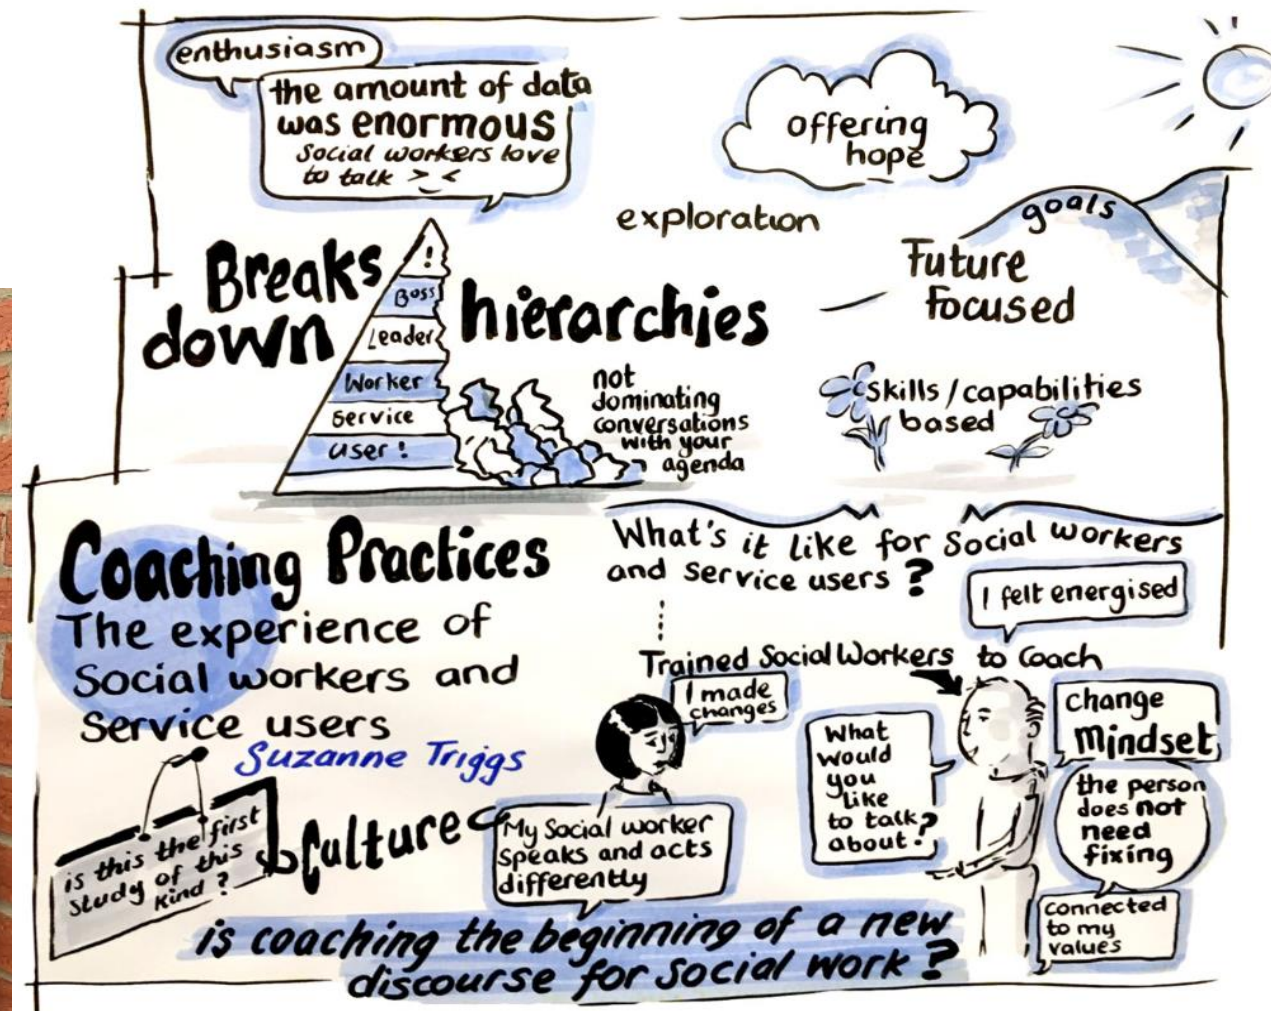 enthusiasm
the amount of data
was enormous
Social workers love
to talk > <
offering
hope
exploration
goals
Future
focused
Breaks
down
hierarchies
!
Boss
Leader
Worker
Service
user!
not
dominating
conversations
with your
agenda
skills/capabilities
based
Coaching Practices
The experience of
Social workers and
Service users
Suzanne Triggs
What's it like for Social workers
and service users?
I felt energised
Trained Social Workers to Coach
I made
changes
What
would
you
like
to talk
about?
change
Mindset
the person
does not
need
fixing
connected
to my
values
is this the first
study of this
kind?
Culture
My Social worker
speaks and acts
differently
is coaching the beginning of a new
discourse for social work?